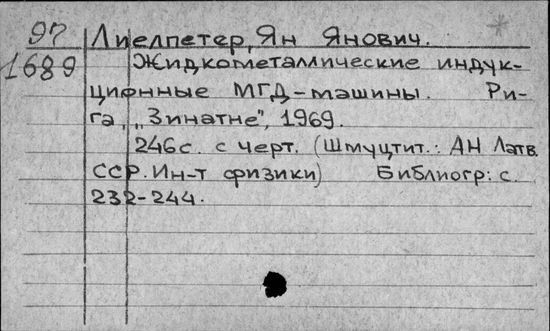 97 Лиелпетер, Ян Янович.
1689 Жидкометаллические индук-
ционные МГД-машины. Ри-
га, „Зинатне", 1969.
246с. с черт. (Шмуцтит.: АН Латв.
ССР. Ин-т физики) Библиогр: с.
232-244.